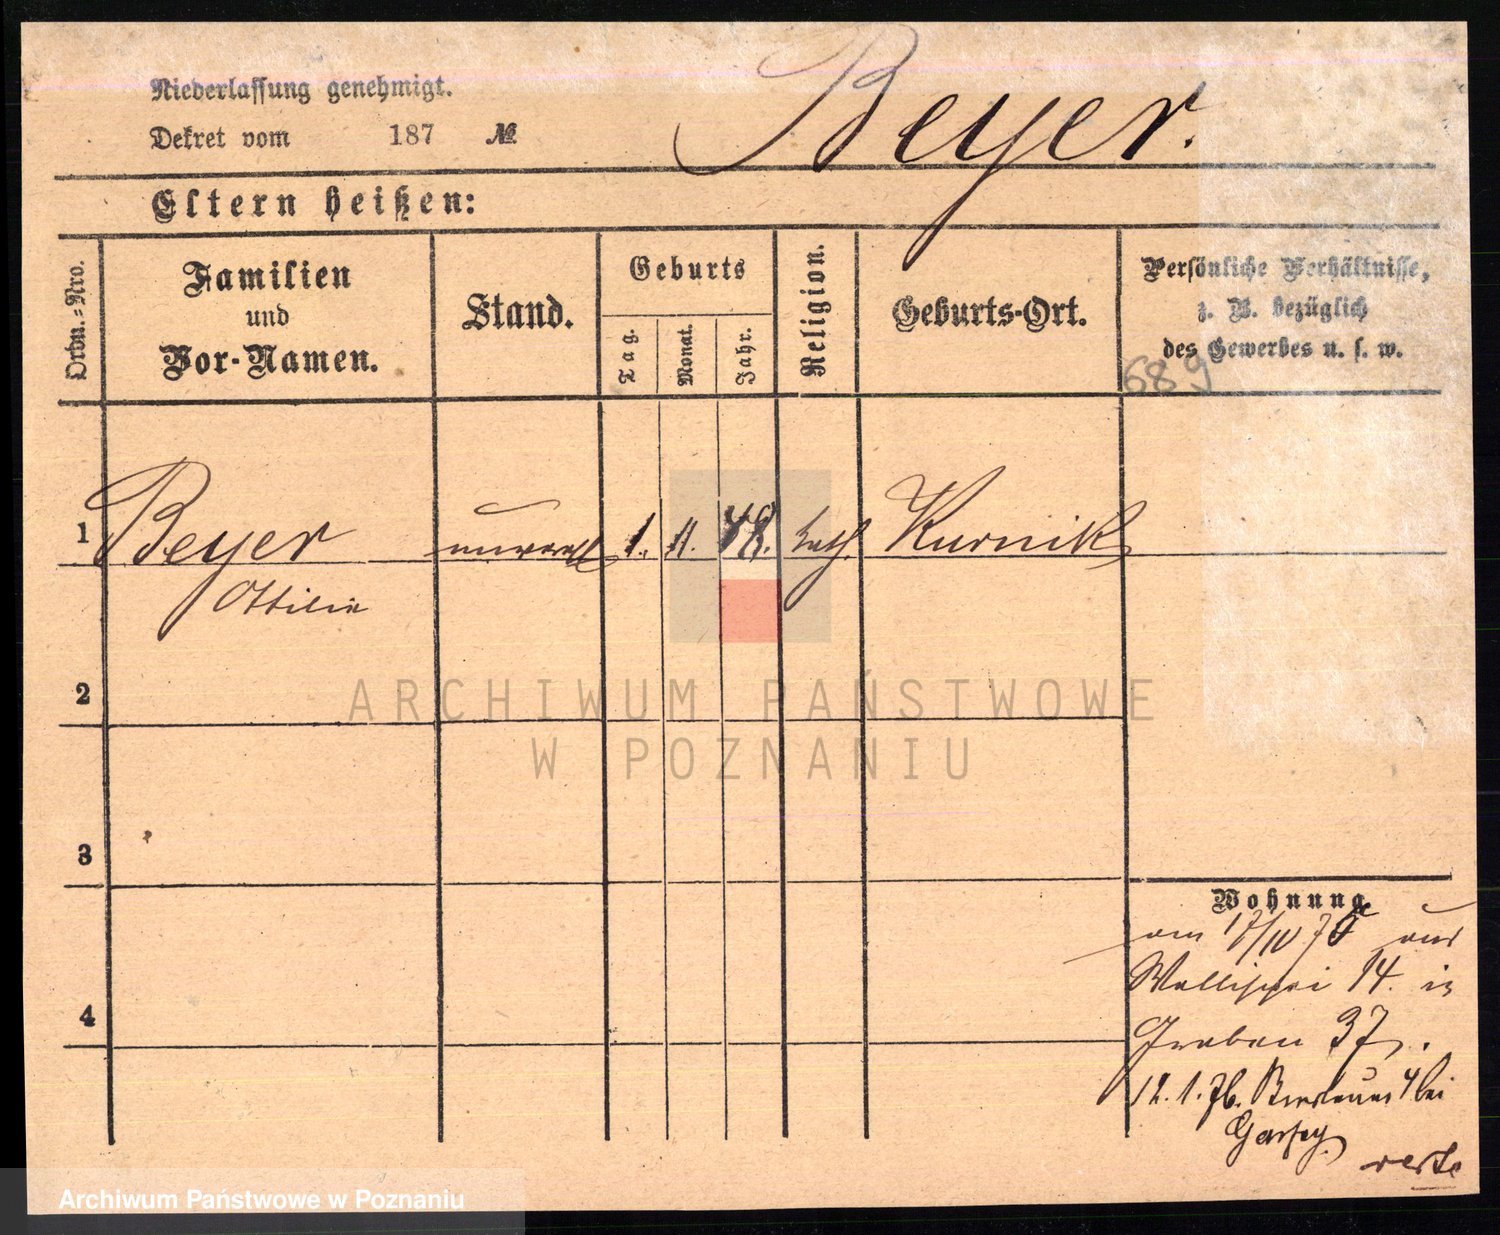 Niederlassung genehmigt.
Dekret vom 187 №
Beyer.
Eltern heißen:
Ordn.-Nro.
Familien
und
Vor-Namen.
Stand.
Geburts
Tag.
Monat.
Jahr.
Religion.
Geburts-Ort.
Persönliche Verhältnisse,
z. B. bezüglich
des Gewerbes u. s. w.
689
1 Beyer unverehl 1. 11. 48. kath. Kurnik
Ottilie
2
ARCHIWUM PAŃSTWOWE
W POZNANIU
3
Wohnung
am 17/10 75 aus
Wallischei 14. in
4
Graben 37.
12. 1. 76. Breslauer 4 bei
verte
Archiwum Państwowe w Poznaniu